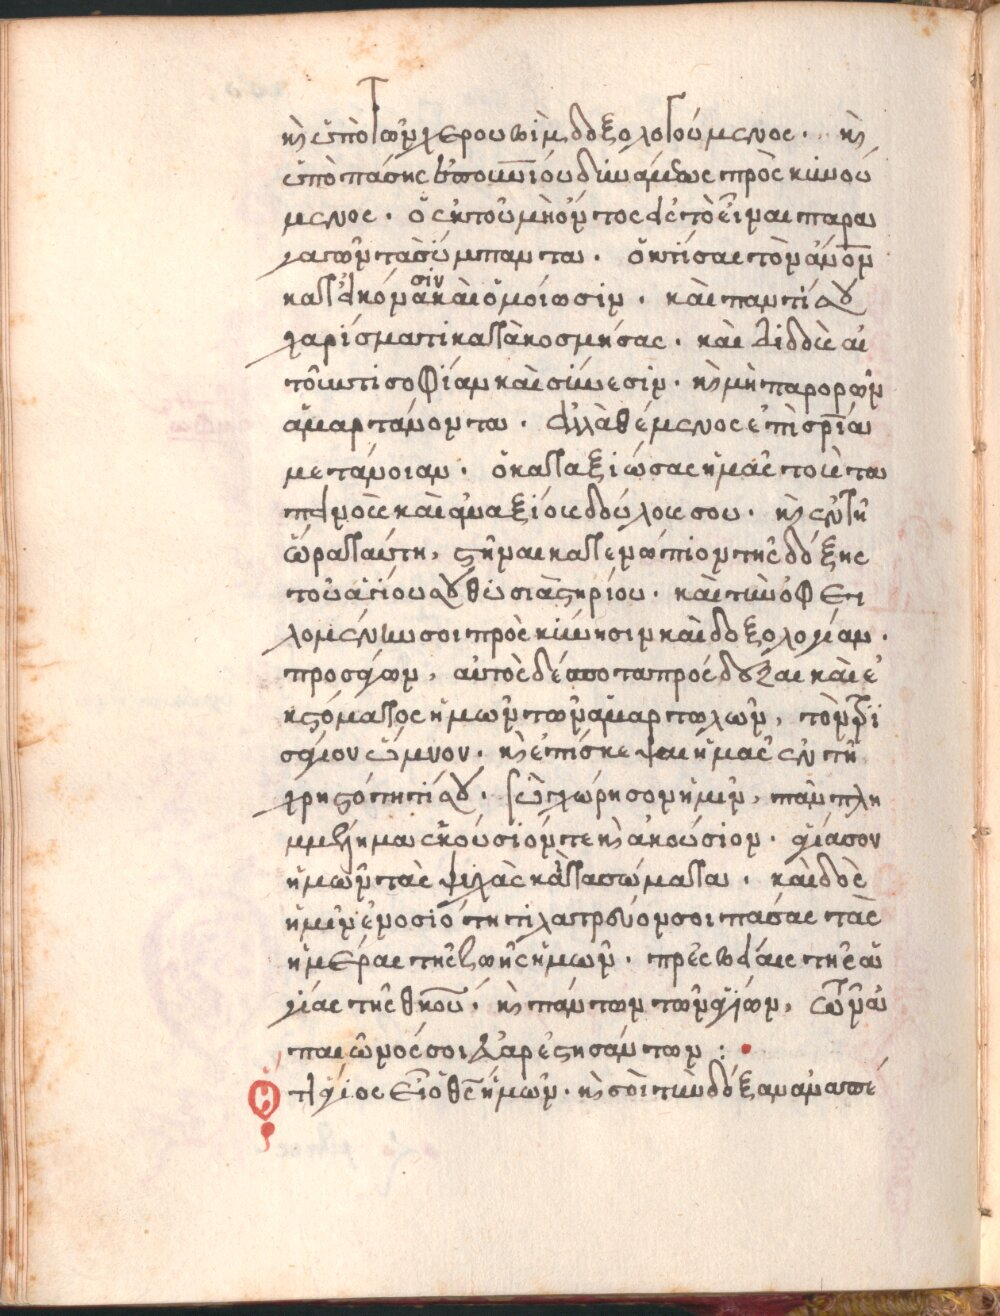 κὶ ὑπὸ τῶν χερουβὶμ δοξολογούμενος. κὶ
ὑπὸ πάσης ἐπουνίου δυνάμεως προσκυνού
μενος. ὁ ἐκ τοῦ μὴ ὄντος εἰς τὸ εἶναι παρα
γαγὼν τὰ σύμπαντα. ὁ κτίσας τὸν ἄνον
κατ εἰκόνα σὴν καὶ ὁμοίωσιν. καὶ παντί σου
χαρίσματι κατακοσμήσας. καὶ διδοὺς αἰ
τοῦντι σοφίαν καὶ σύνεσιν. κὶ μὴ παρορῶν
ἁμαρτάνοντα. ἀλλὰ θέμενος ἐπὶ σρία
μετάνοιαν. ὁ καταξιώσας ἡμᾶς τοὺς τα
πεινοὺς καὶ ἀναξίους δούλους σου. κὶ ἐν τῇ
ὥρα ταύτη, στῆναι κατενώπιον τῆς δόξης
τοῦ ἁγίου σου θυσιαστηρίου. καὶ τὴν ὀφει
λομένην σοι προσκύνησιν καὶ δοξολογίαν.
προσάγων, αὐτὸς δέσποτα πρόσδεξαι καὶ ἐ
κ στόματος ἡμῶν τῶν ἁμαρτωλῶν, τὸν τρι
σάγιον ὕμνον. κὶ ἐπίσκεψαι ἡμᾶς ἐν τῇ
χρηστότητί σου. συγχώρησον ἡμῖν, πᾶν πλη
μμέλημα ἑκούσιόν τε κὶ ἀκούσιον. ἁγίασον
ἡμῶν τὰς ψυχὰς κὰι τὰ σώματα. καὶ δὸς
ἡμῖν ἐν ὁσιότητι λατρεύον σοι πάσας τὰς
ἡμέρας τῆς ζωῆς ἡμῶν. πρεσβείαις τῆς ἁ
γίας της θκου. κὶ πάντων τῶν ἁγίων, τῶν ἀ
π αἰῶνός σοι εὐαρεστησάντων :
Ὅτι ἅγιος εἶ ὁ θς ἡμῶν. κὶ σοὶ τὴν δόξαν ἀναπέ